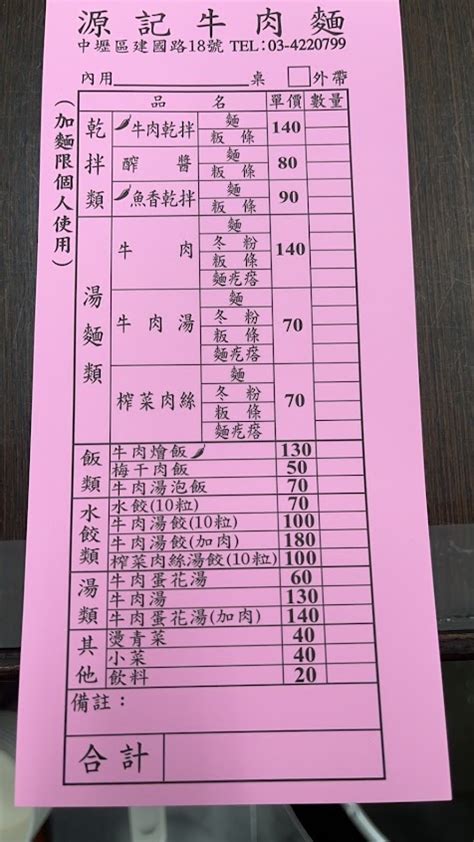 源記牛肉麵
中壢區建國路18號 TEL:03-4220799
內用 桌 外帶
(加麵限個人使用)
品名 單價 數量
乾拌類
牛肉乾拌 麵 粄條 140
醡醬 麵 粄條 80
魚香乾拌 麵 粄條 90
湯麵類
牛肉 麵 冬粉 粄條 麵疙瘩 140
牛肉湯 麵 冬粉 粄條 麵疙瘩 70
榨菜肉絲 麵 冬粉 粄條 麵疙瘩 70
飯類
牛肉燴飯 130
梅干肉飯 50
牛肉湯泡飯 70
水餃類
水餃(10粒) 70
牛肉湯餃(10粒) 100
牛肉湯餃(加肉) 180
榨菜肉絲湯餃(10粒) 100
湯類
牛肉蛋花湯 60
牛肉湯 130
牛肉蛋花湯(加肉) 140
其他
燙青菜 40
小菜 40
飲料 20
備註：
合計